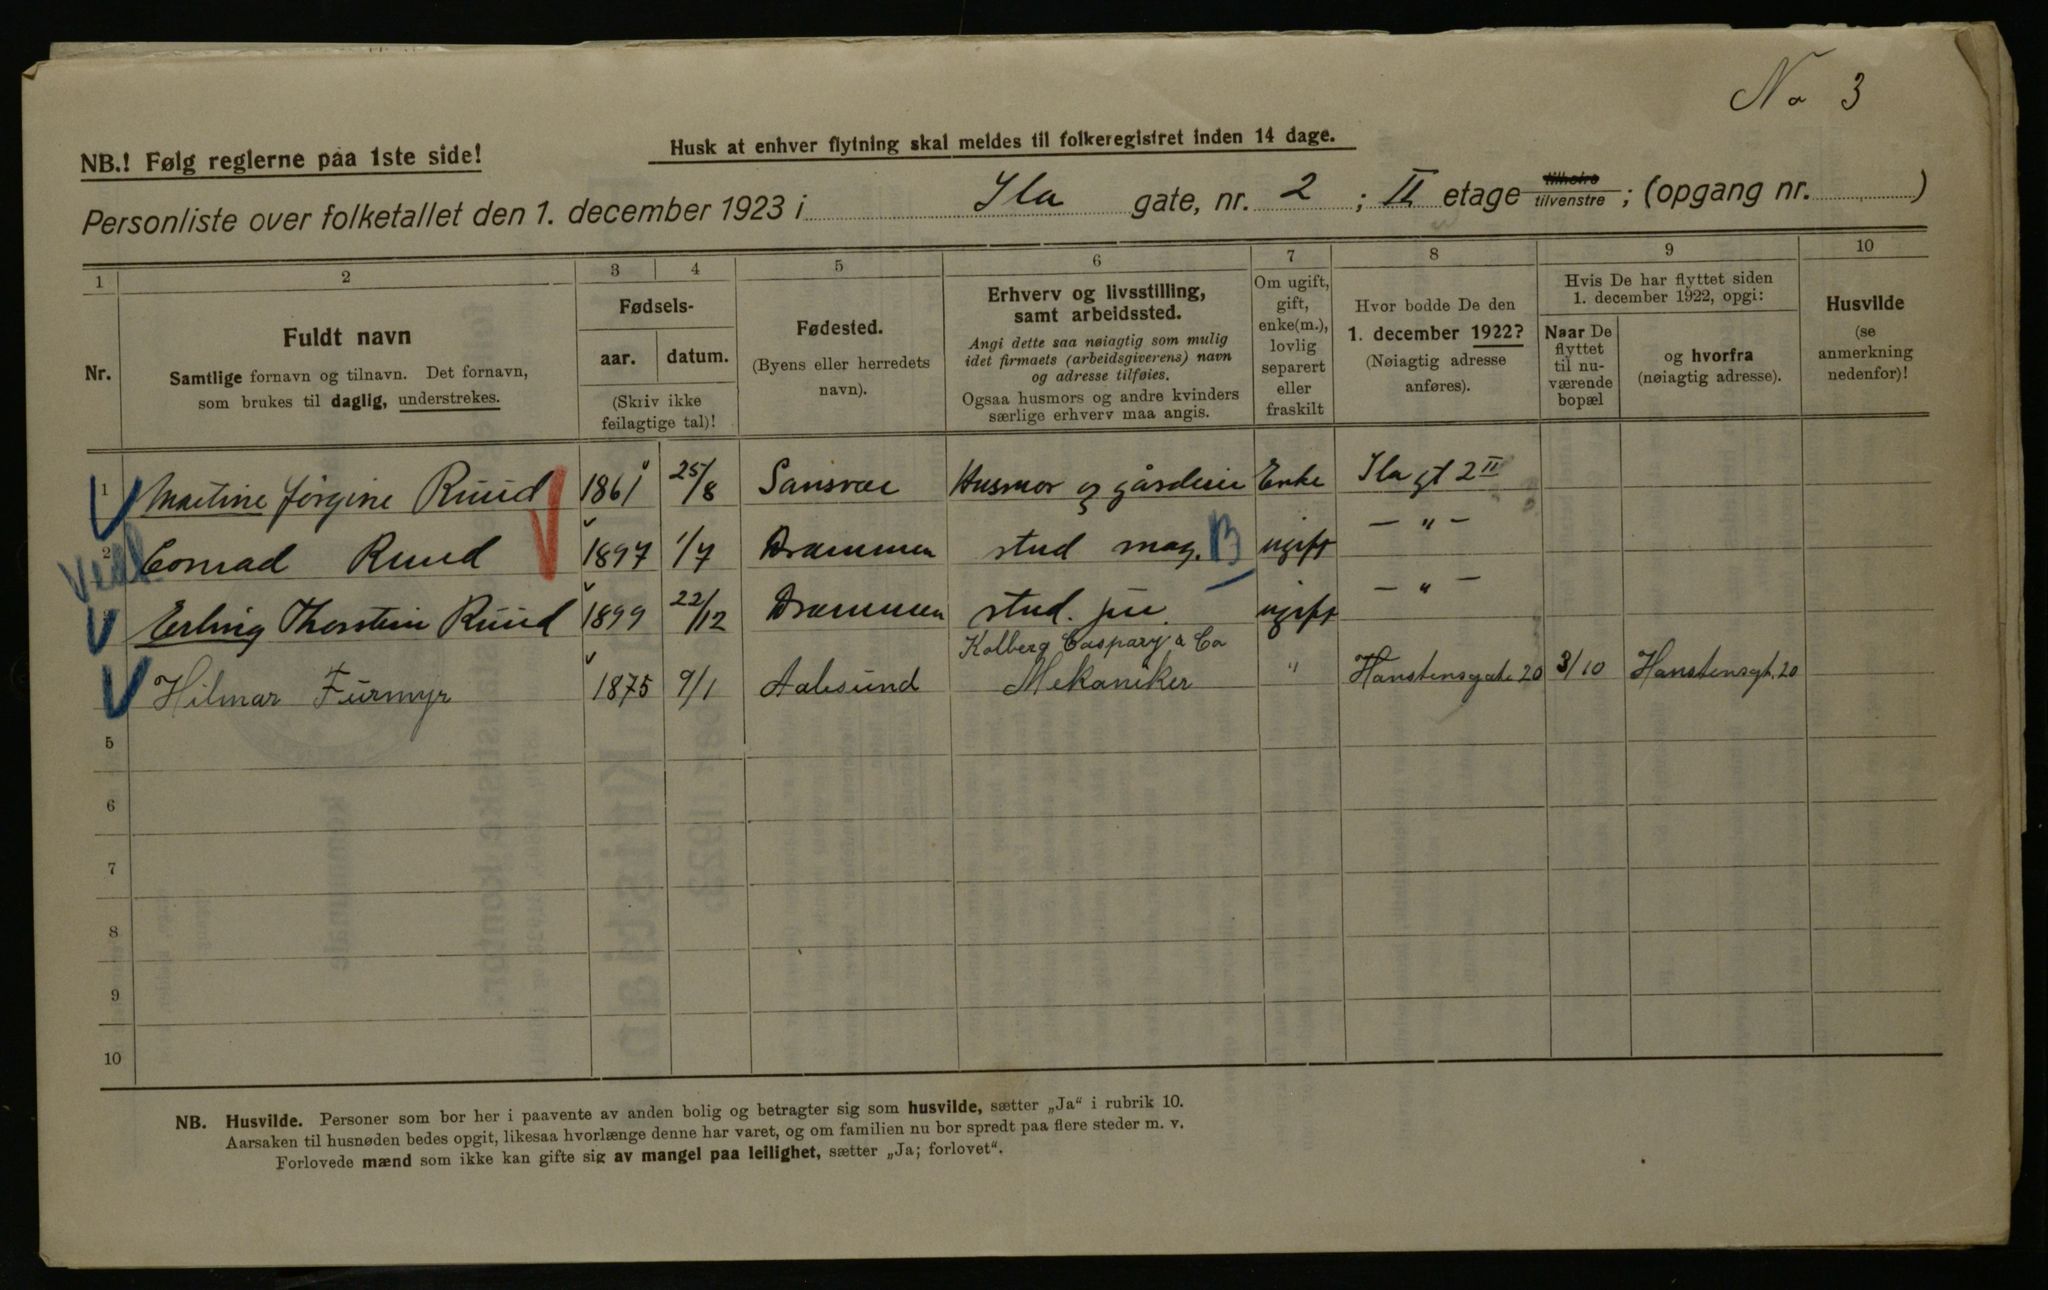 No 3
NB.! Følg reglerne paa 1ste side!
Husk at enhver flytning skal meldes til folkeregistret inden 14 dage.
Personliste over folketallet den 1. december 1923 i Ila gate, nr. 2 ; II etage tilhøire / tilvenstre ; (opgang nr. )
1 2 3 4 5 6 7 8 9 10
Nr.
Fuldt navn
Samtlige fornavn og tilnavn. Det fornavn,
som brukes til daglig, understrekes.
Fødsels-
aar. datum.
(Skriv ikke
feilagtige tal)!
Fødested.
(Byens eller herredets
navn).
Erhverv og livsstilling,
samt arbeidssted.
Angi dette saa nøiagtig som mulig
idet firmaets (arbeidsgiverens) navn
og adresse tilføies.
Ogsaa husmors og andre kvinders
særlige erhverv maa angis.
Om ugift,
gift,
enke(m.),
lovlig
separert
eller
fraskilt
Hvor bodde De den
1. december 1922?
(Nøiagtig adresse
anføres).
Hvis De har flyttet siden
1. december 1922, opgi:
Naar De
flyttet
til nu-
værende
bopæl
og hvorfra
(nøiagtig adresse).
Husvilde
(se
anmerkning
nedenfor)!
1 Martine Jørgine Ruud 1861 25/8 Sansvær Husmor og gårdeier Enke Ila gt 2 II
2 Conrad Ruud 1897 1/7 Drammen stud mag. B ugift — " —
Erling Thorstein Ruud 1899 22/12 Drammen stud. jur. ugift — " —
Kolberg Caspary & Co
Hilmar Furmyr 1875 9/1 Aalesund Mekaniker " Hanstensgate 20 3/10 Hanstensgt. 20
5
6
7
8
9
10
NB. Husvilde. Personer som bor her i paavente av anden bolig og betragter sig som husvilde, sætter „Ja“ i rubrik 10.
Aarsaken til husnøden bedes opgit, likesaa hvorlænge denne har varet, og om familien nu bor spredt paa flere steder m. v.
Forlovede mænd som ikke kan gifte sig av mangel paa leilighet, sætter „Ja; forlovet“.